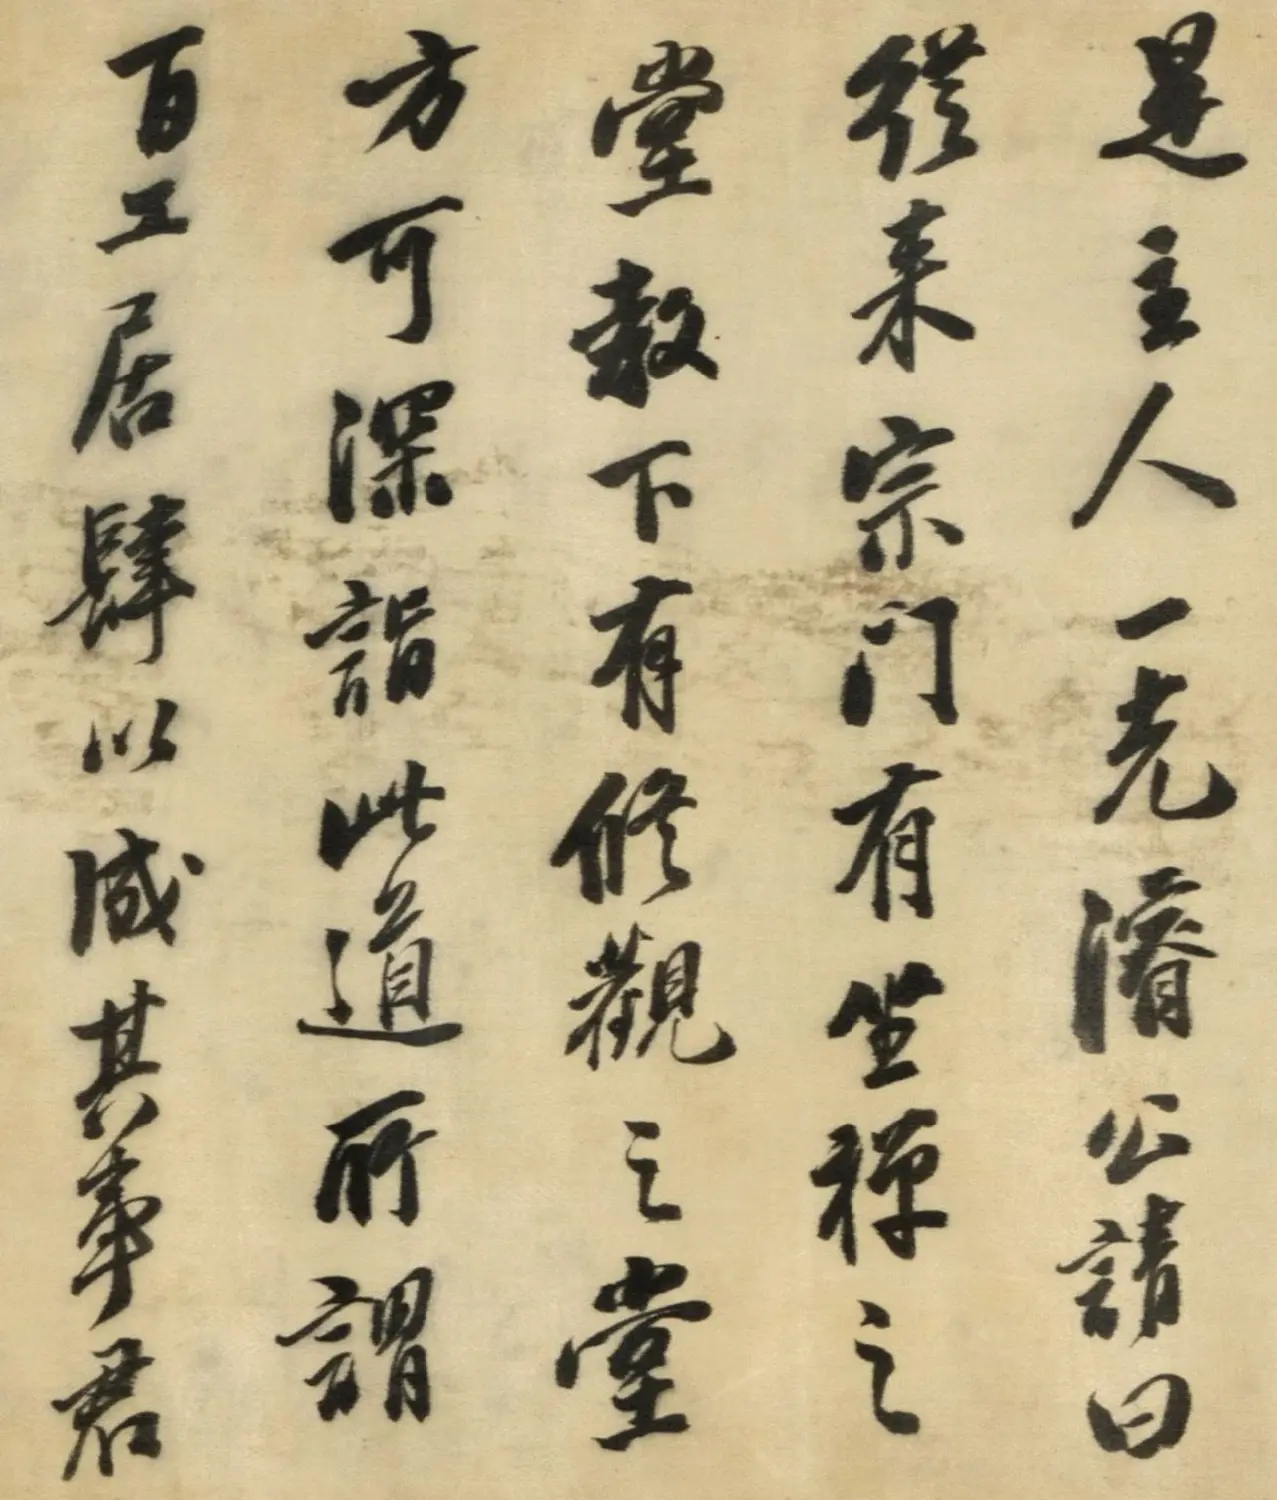 是主人一光濬公請曰
從来宗门有坐禪之
堂教下有修觀之堂
方可深詣此道所謂
百工居肆以成其事君